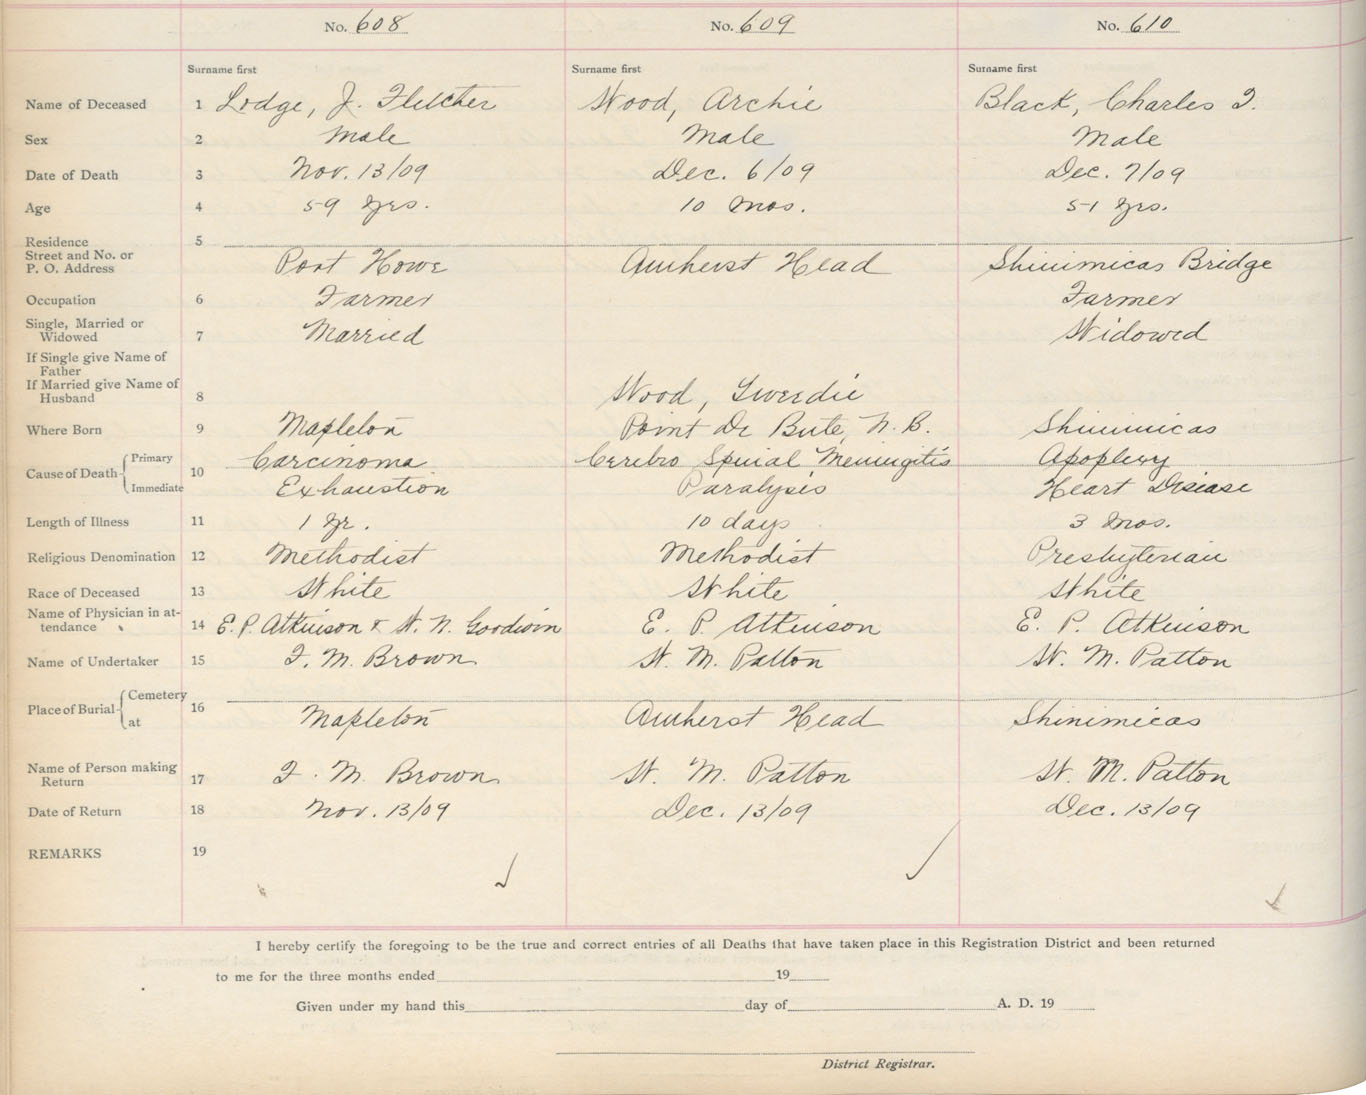 No. 608 No. 609 No. 610
Surname first Surname first Surname first
Name of Deceased 1 Lodge, J. Fletcher Wood, Archie Black, Charles I.
Sex 2 Male Male Male
Date of Death 3 Nov. 13/09 Dec. 6/09 Dec. 7/09
Age 4 59 yrs. 10 Mos. 51 yrs.
Residence 5
Street and No. or
P. O. Address Port Howe Amherst Head Shinimicas Bridge
Occupation 6 Farmer Farmer
Single, Married or
Widowed 7 Married Widowed
If Single give Name of
Father
If Married give Name of
Husband 8 Wood,
Where Born 9 Mapleton Point De Bute, N.B. Shinimicas
Cause of Death Primary 10 Carcinoma Cerebro Spinial Meningitis Apoplexy
Immediate Exhaustion Paralysis Heart Disease
Length of Illness 11 1 yr. 10 days 3 Mos.
Religious Denomination 12 Methodist Methodist Presbyterian
Race of Deceased 13 White White White
Name of Physician in at-
tendance 14 E. P. Atkinson & W. N. Goodwin E. P. Atkinson E. P. Atkinson
Name of Undertaker 15 F. M. Brown W. M. Patton W. M. Patton
Place of Burial Cemetery 16
at Mapleton Amherst Head Shinimicas
Name of Person making
Return 17 F. M. Brown W. M. Patton W. M. Patton
Date of Return 18 Nov. 13/09 Dec. 13/09 Dec. 13/09
REMARKS 19
I hereby certify the foregoing to be the true and correct entries of all Deaths that have taken place in this Registration District and been returned
to me for the three months ended 19
Given under my hand this day of A. D. 19
District Registrar.